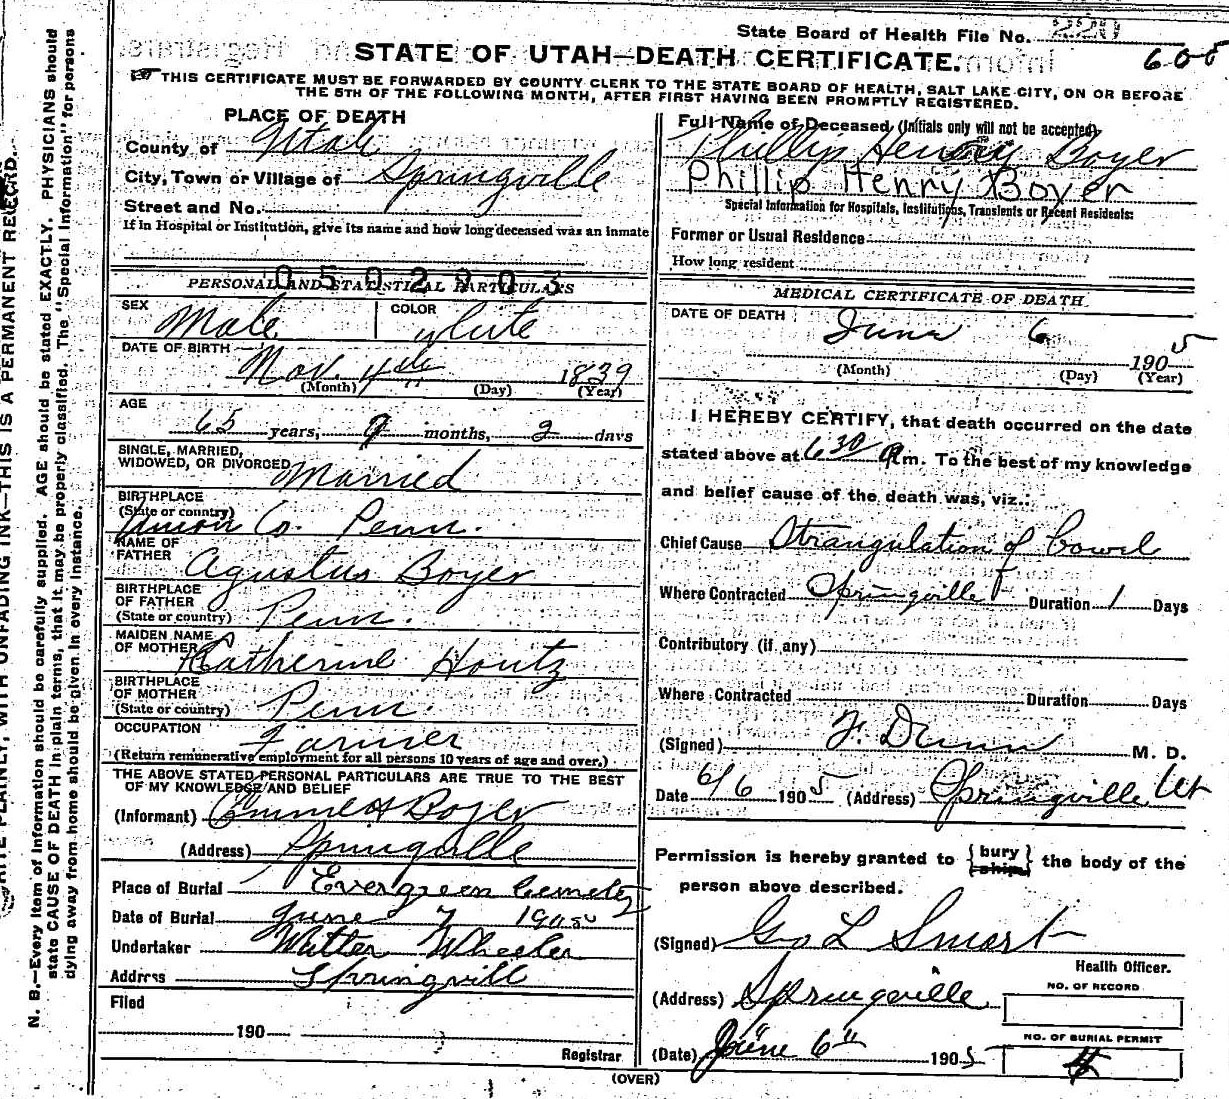 State Board of Health File No. 2220
605
STATE OF UTAH—DEATH CERTIFICATE.
THIS CERTIFICATE MUST BE FORWARDED BY COUNTY CLERK TO THE STATE BOARD OF HEALTH, SALT LAKE CITY, ON OR BEFORE
THE 5TH OF THE FOLLOWING MONTH, AFTER FIRST HAVING BEEN PROMPTLY REGISTERED.
PLACE OF DEATH
County of Utah
City, Town or Village of Springville
Street and No.
If in Hospital or Institution, give its name and how long deceased was an inmate
0502903
PERSONAL AND STATISTICAL PARTICULARS
SEX Male COLOR White
DATE OF BIRTH Nov. 4th 1839
(Month) (Day) (Year)
AGE
65 years, 9 months, 2 days
SINGLE, MARRIED,
WIDOWED, OR DIVORCED Married
BIRTHPLACE
(State or country)
Union Co. Penn.
NAME OF
FATHER Agustus Boyer
BIRTHPLACE
OF FATHER
(State or country) Penn.
MAIDEN NAME
OF MOTHER Catherine Houtz
BIRTHPLACE
OF MOTHER
(State or country) Penn.
OCCUPATION Farmer
(Return remunerative employment for all persons 10 years of age and over.)
THE ABOVE STATED PERSONAL PARTICULARS ARE TRUE TO THE BEST
OF MY KNOWLEDGE AND BELIEF
(Informant) Boyer
(Address) Springville
Place of Burial Evergreen Cemetery
Date of Burial June 7 1905
Undertaker Wheeler
Address Springvill
Filed
190
Registrar
Full Name of Deceased (Initials only will not be accepted)
Phillip Henry Boyer
Phillip Henry Boyer
Special Information for Hospitals, Institutions, Transients or Recent Residents:
Former or Usual Residence
How long resident
MEDICAL CERTIFICATE OF DEATH
DATE OF DEATH June 6 1905
(Month) (Day) (Year)
I HEREBY CERTIFY, that death occurred on the date
stated above at 6 30 A m. To the best of my knowledge
and belief cause of the death was, viz.:
Chief Cause Strangulation of bowel
Where Contracted Springville Duration 1 Days
Contributory (if any)
Where Contracted Duration Days
(Signed) F. Dunn M. D.
Date 6/6 1905 (Address) Springville Ut
Permission is hereby granted to { bury ship } the body of the
person above described.
(Signed) Geo L Smart
Health Officer.
(Address) Springville
NO. OF RECORD
NO. OF BURIAL PERMIT
(Date) June 6" 1905
(OVER)
N. B.—Every item of information should be carefully supplied. AGE should be stated EXACTLY. PHYSICIANS should
state CAUSE OF DEATH in plain terms, that it may be properly classified. The "Special Information" for persons
dying away from home should be given in every instance.
PLAINLY, WITH UNFADING INK—THIS IS A PERMANENT RECORD.